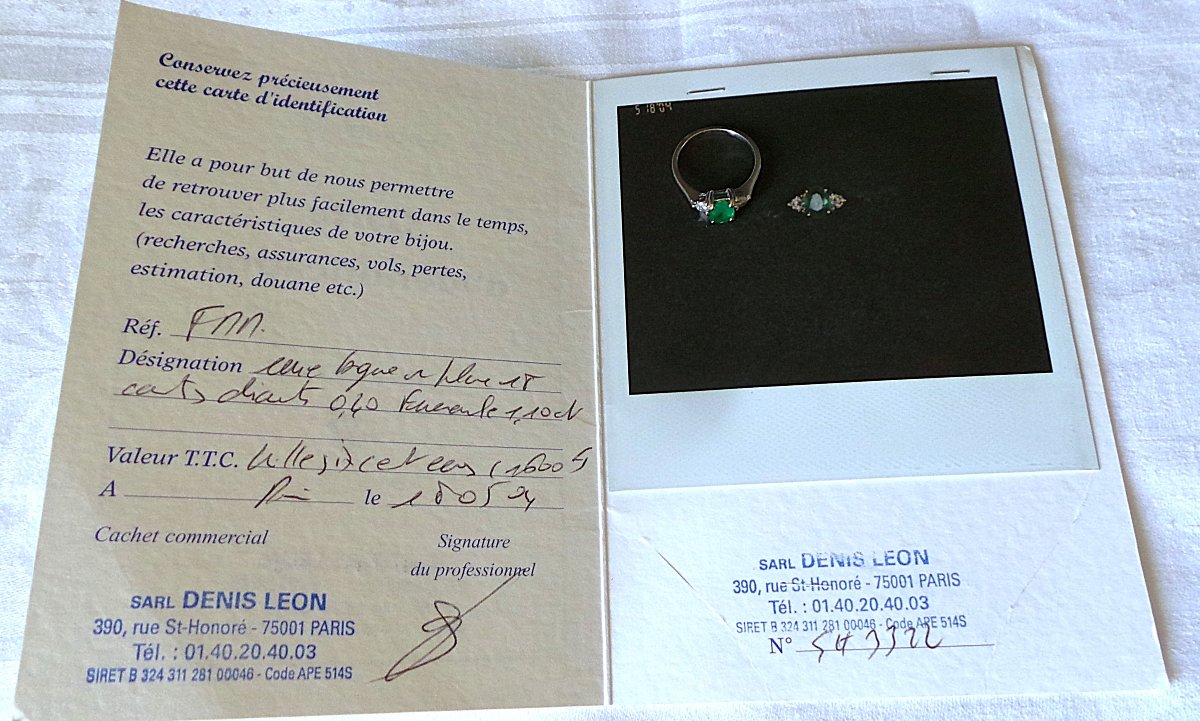 Conservez précieusement
cette carte d'identification
Elle a pour but de nous permettre
de retrouver plus facilement dans le temps,
les caractéristiques de votre bijou.
(recherches, assurances, vols, pertes,
estimation, douane etc.)
Réf.
Désignation une bague
0,40 Emeraude 1,10 ct
Valeur T.T.C. Mille six cent euros (1600 €
A Paris le 18 05 04
Cachet commercial Signature
du professionnel
SARL DENIS LEON
390, rue St-Honoré - 75001 PARIS
Tél. : 01.40.20.40.03
SIRET B 324 311 281 00046 - Code APE 514S
5 18 '04
SARL DENIS LEON
390, rue St-Honoré - 75001 PARIS
Tél. : 01.40.20.40.03
SIRET B 324 311 281 00046 - Code APE 514S
N°